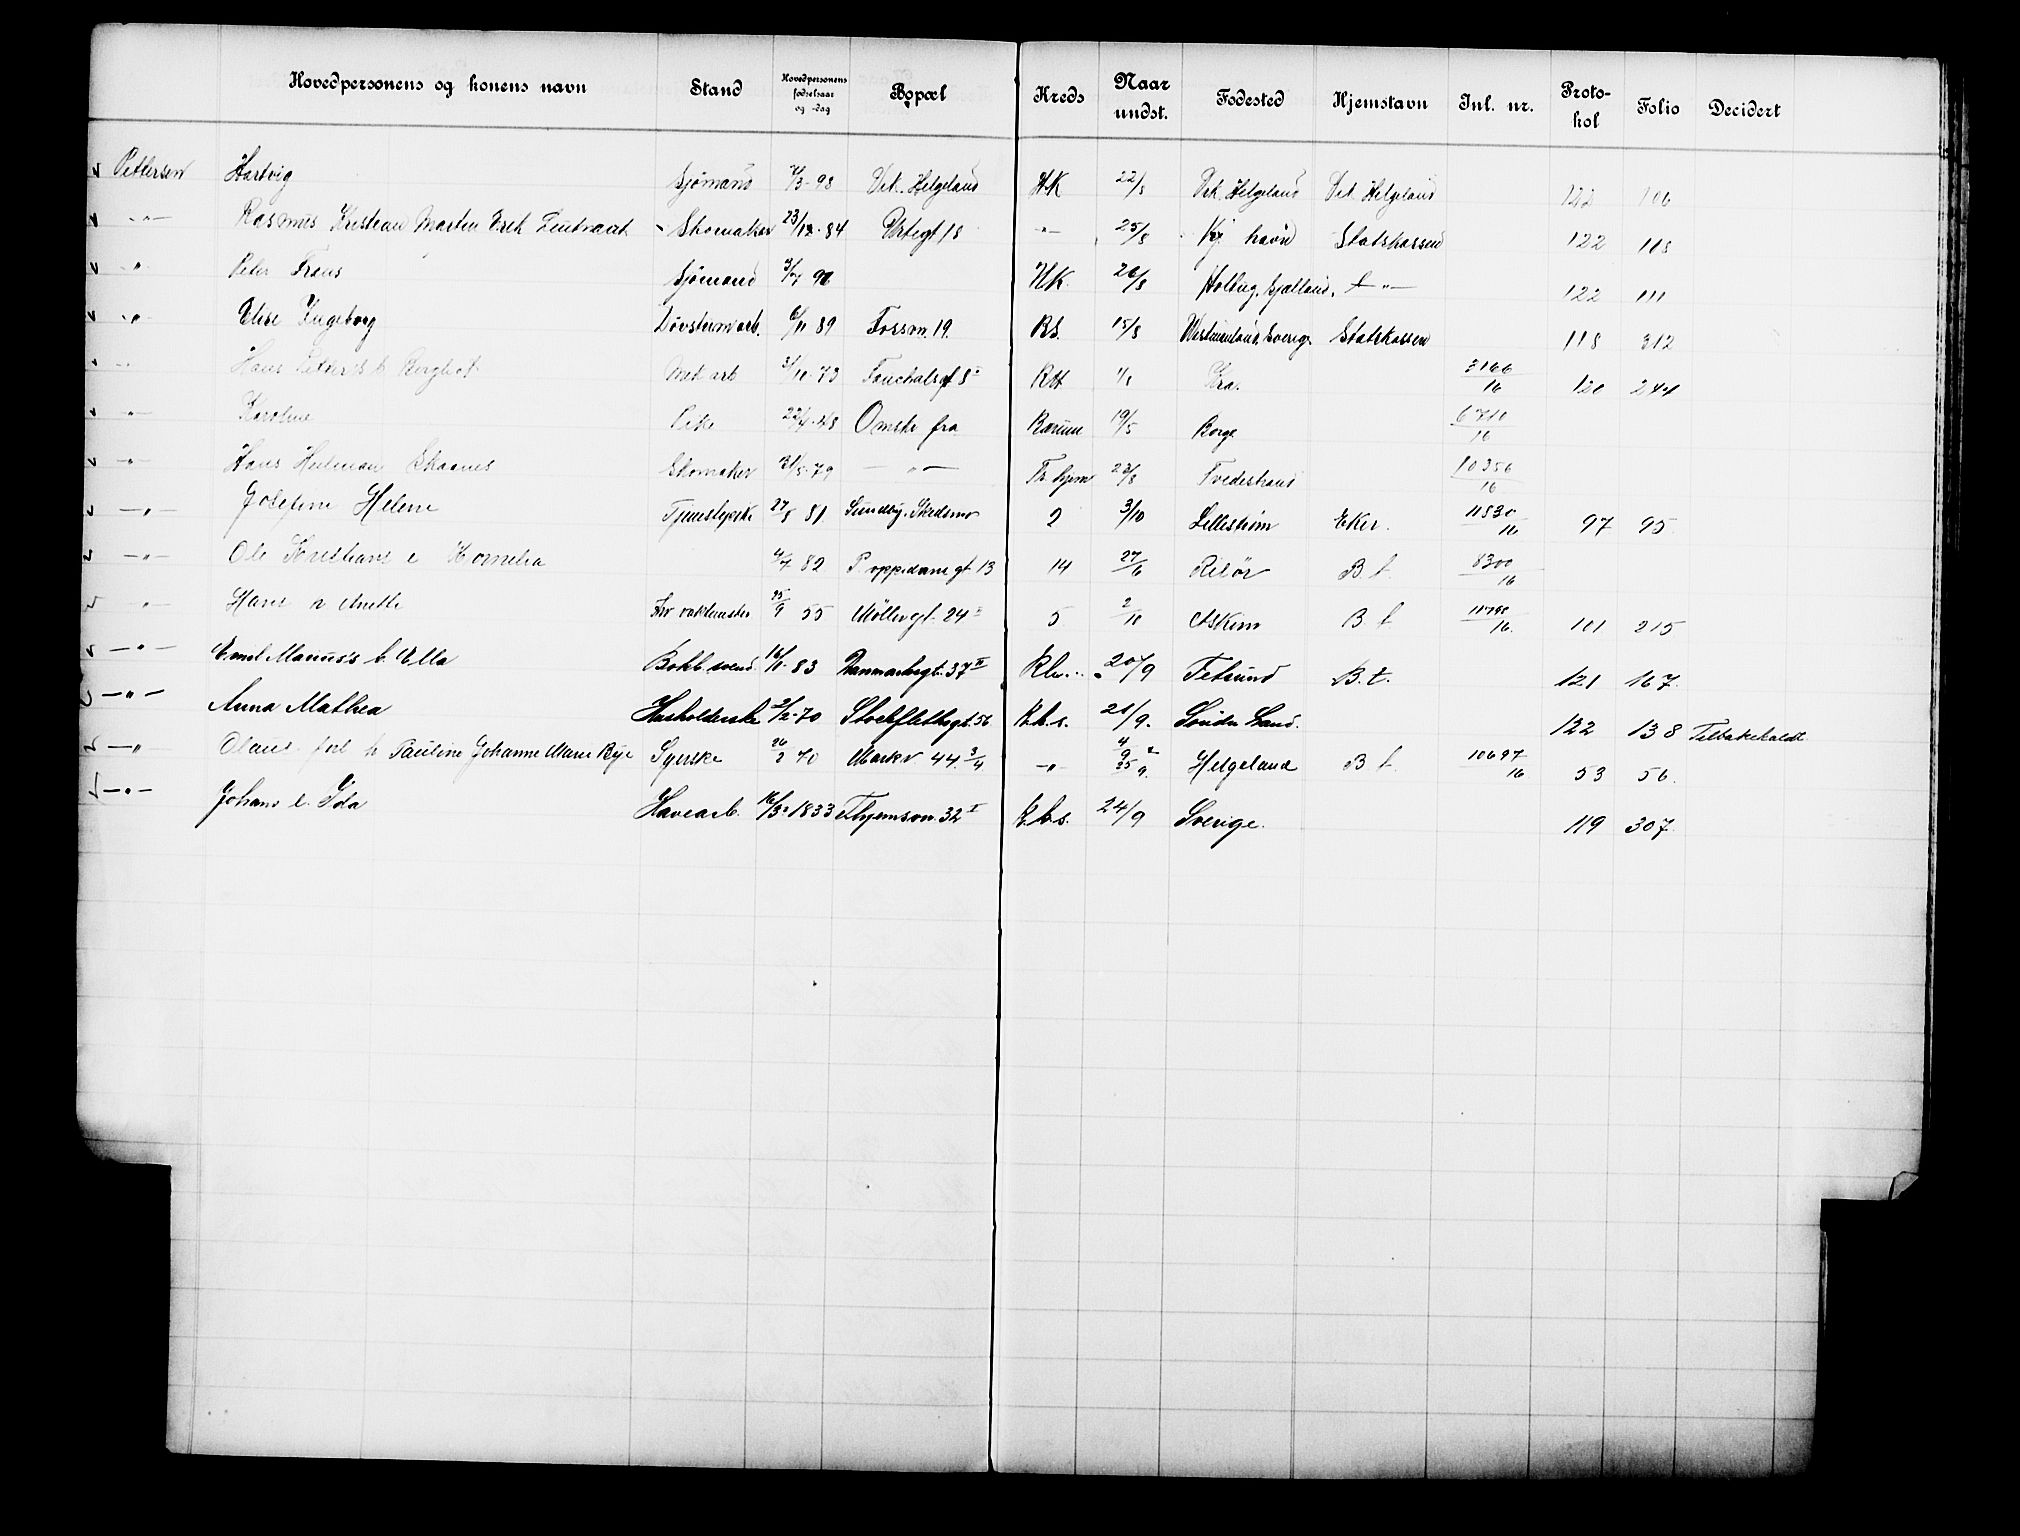 Hovedpersonens og konens navn Stand Hovedpersonens fødselsaar og -dag Bopæl Kreds Naar undst. Fødested Hjemstavn Inl. nr. Proto-kol Folio Decidert
Pettersen Hartvig Sjømand 7/3-98 Vik. Helgeland H.K 22/8 Vik. Helgeland Vik. Helgeland 122 106
-"- Rasmus Kristian Martin Erik Skomaker 23/12-84 Urtegt 18 -"- 25/8 Kj havn Statskassen 122 118
" Peter Frans Sjømand 3/7 9 H.K. 26/8 Holbæg, Sjælland, -"- 122 111
" Elise Ingeborg Løvstennarb. 6/11 89 Fossvn. 19. R.S. 15/8 Westmanland, Sverige Statskassen 118 312
" Hans b. Bergliot Met arb 3/10-73 Fouchalsgt 8 1/8 Kra. 3166/16 120 244
-"- Karoline Pike 22/4-48 Ønske fra Bærum 19/5 Borge 6710/16
-"- Hans Herlman Skaanes Skomaker 31/5-79 -"- Tr. hjem 23/8 Tvedestrand 10356/16
-"- Josefine Helene Tjenestepike 27/8 81 Sundby, Skedsmo 2 3/10 Lillestrøm Eker. 11830/16 97 95
-"- Ole Kristians e Kornelia 4/7 82 P. oppedamsgt 13 14 27/6 Risør B. t. 8300/16
-"- Hans e Anette Frv vaktmester 25/9 55 Møllergt. 24 5 2/10 Askim B t. 11798/16. 101 215
-"- Emil Marius's b. Ella Bokb. svend 16/11-83 Danmarksgt. 37 II 20/9 Fetsund B.t. 121 167.
-"- Anna Mathea Husholderske 2/2-70 Stockflethsgt. 56 K.b.s. 21/9. Søndre Land. 122 138 Tilbakekaldt
-"- Olaus' fhl h Pauline Johanne Marie Bye Syerske 26/2 70 Markv 44. 3/4 -"- 4/9 25/9. Helgeland B t. 10697/16 53 56.
-"- Johans e. Ida Havearb. 16/3-1833 Thjemsvn. 32 I K.b.s. 24/9 Sverige. 119 307.